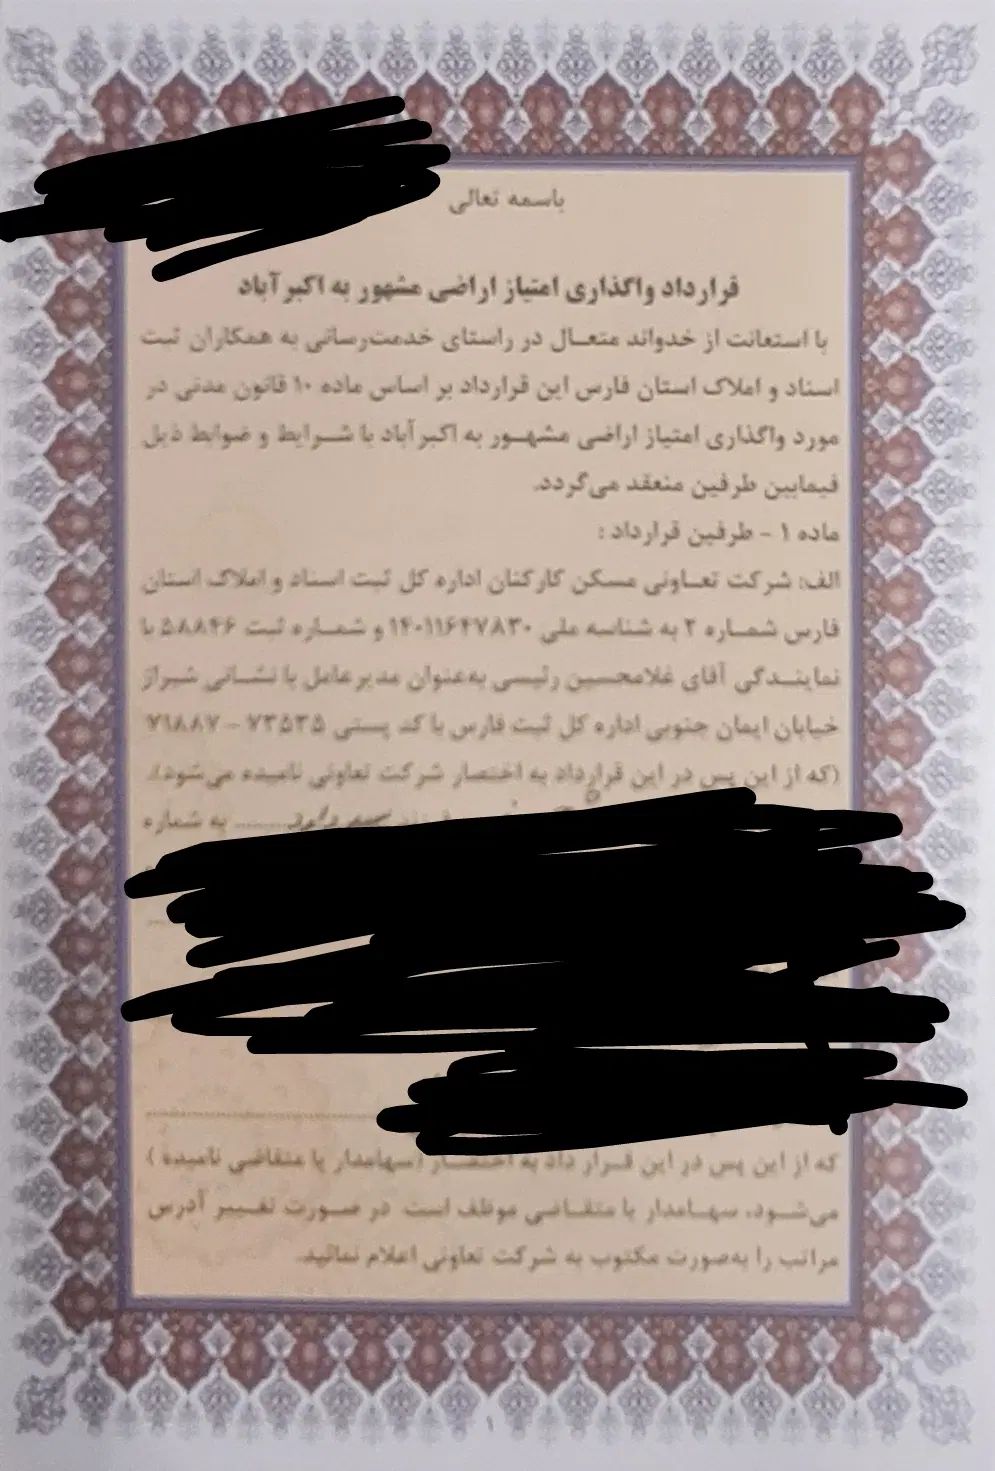 باسمه تعالی
قرارداد واگذاری امتیاز اراضی مشهور به اکبرآباد
با استعانت از خدواند متعـال در راستای خدمت‌رسانی به همکاران ثبت
اسناد و املاک استان فارس این قرارداد بر اساس ماده ۱۰ قانون مدنی در
مورد واگذاری امتیاز اراضی مشهـور به اکبرآباد با شـرایط و ضوابط ذیل
فیمابین طرفین منعقد می‌گردد.
ماده ۱ - طرفین قرارداد :
الف: شرکت تعـاونی مسکن کارکنان اداره کل ثبت اسناد و املاک استان
فارس شمـاره ۲ به شناسه ملی ۱۴۰۱۱۶۴۷۸۳۰ و شمـاره ثبت ۵۸۸۴۶ با
نماینـدگی آقای غلامحسین رئیسی به‌عنوان مدیرعامل با نشـانی شیراز
خیابان ایمان جنوبی اداره کل ثبت فارس با کد پستی ۷۳۵۳۵ - ۷۱۸۸۷
(که از این پس در این قرارداد به اختصار شرکت تعاونی نامیده می‌شود).
به شماره
که از این پس در این قـرار داد به اختصـار (سهامدار یا متقاضی نامیده )
می‌شـود، سهـامدار یا متقـاضی موظف است در صـورت تغـییر آدرس
مراتب را به‌صورت مکتوب به شرکت تعاونی اعلام نمائید.
۱